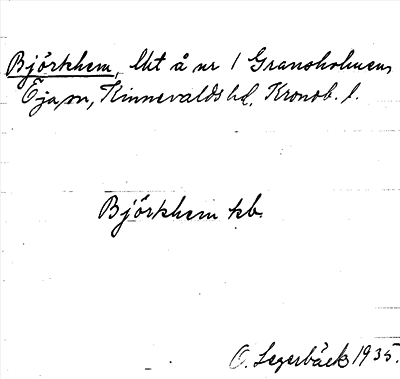 Björkhem, lht å nr 1 Gransholmen,
Öja sn, Kinnevalds hd, Kronob. l.
Björkhem kb.
O. Segerbäck 1935.